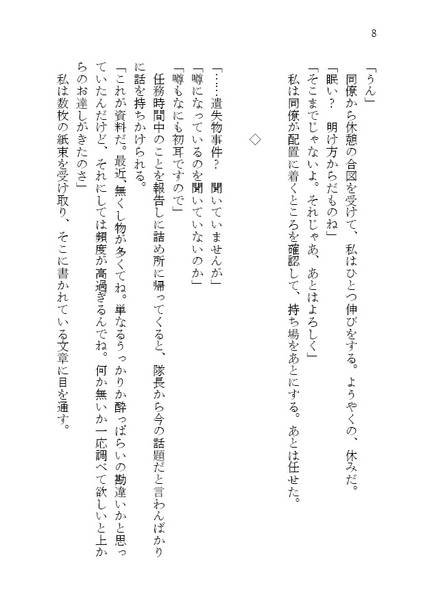 8
「うん」
同僚から休憩の合図を受けて、私はひとつ伸びをする。ようやくの、休みだ。
「眠い？　明け方からだものね」
「そこまでじゃないよ。それじゃあ、あとはよろしく」
私は同僚が配置に着くところを確認して、持ち場をあとにする。あとは任せた。
◇
「……遺失物事件？　聞いていませんが」
「噂になっているのを聞いていないのか」
「噂もなにも初耳ですので」
任務時間中のことを報告しに詰め所に帰ってくると、隊長から今の話題だと言わんばかり
に話を持ちかけられる。
「これが資料だ。最近、無くし物が多くてね。単なるうっかりか酔っぱらいの勘違いかと思っ
ていたんだけど、それにしては頻度が高過ぎるんでね。何か無いか一応調べて欲しいと上か
らのお達しがきたのさ」
私は数枚の紙束を受け取り、そこに書かれている文章に目を通す。